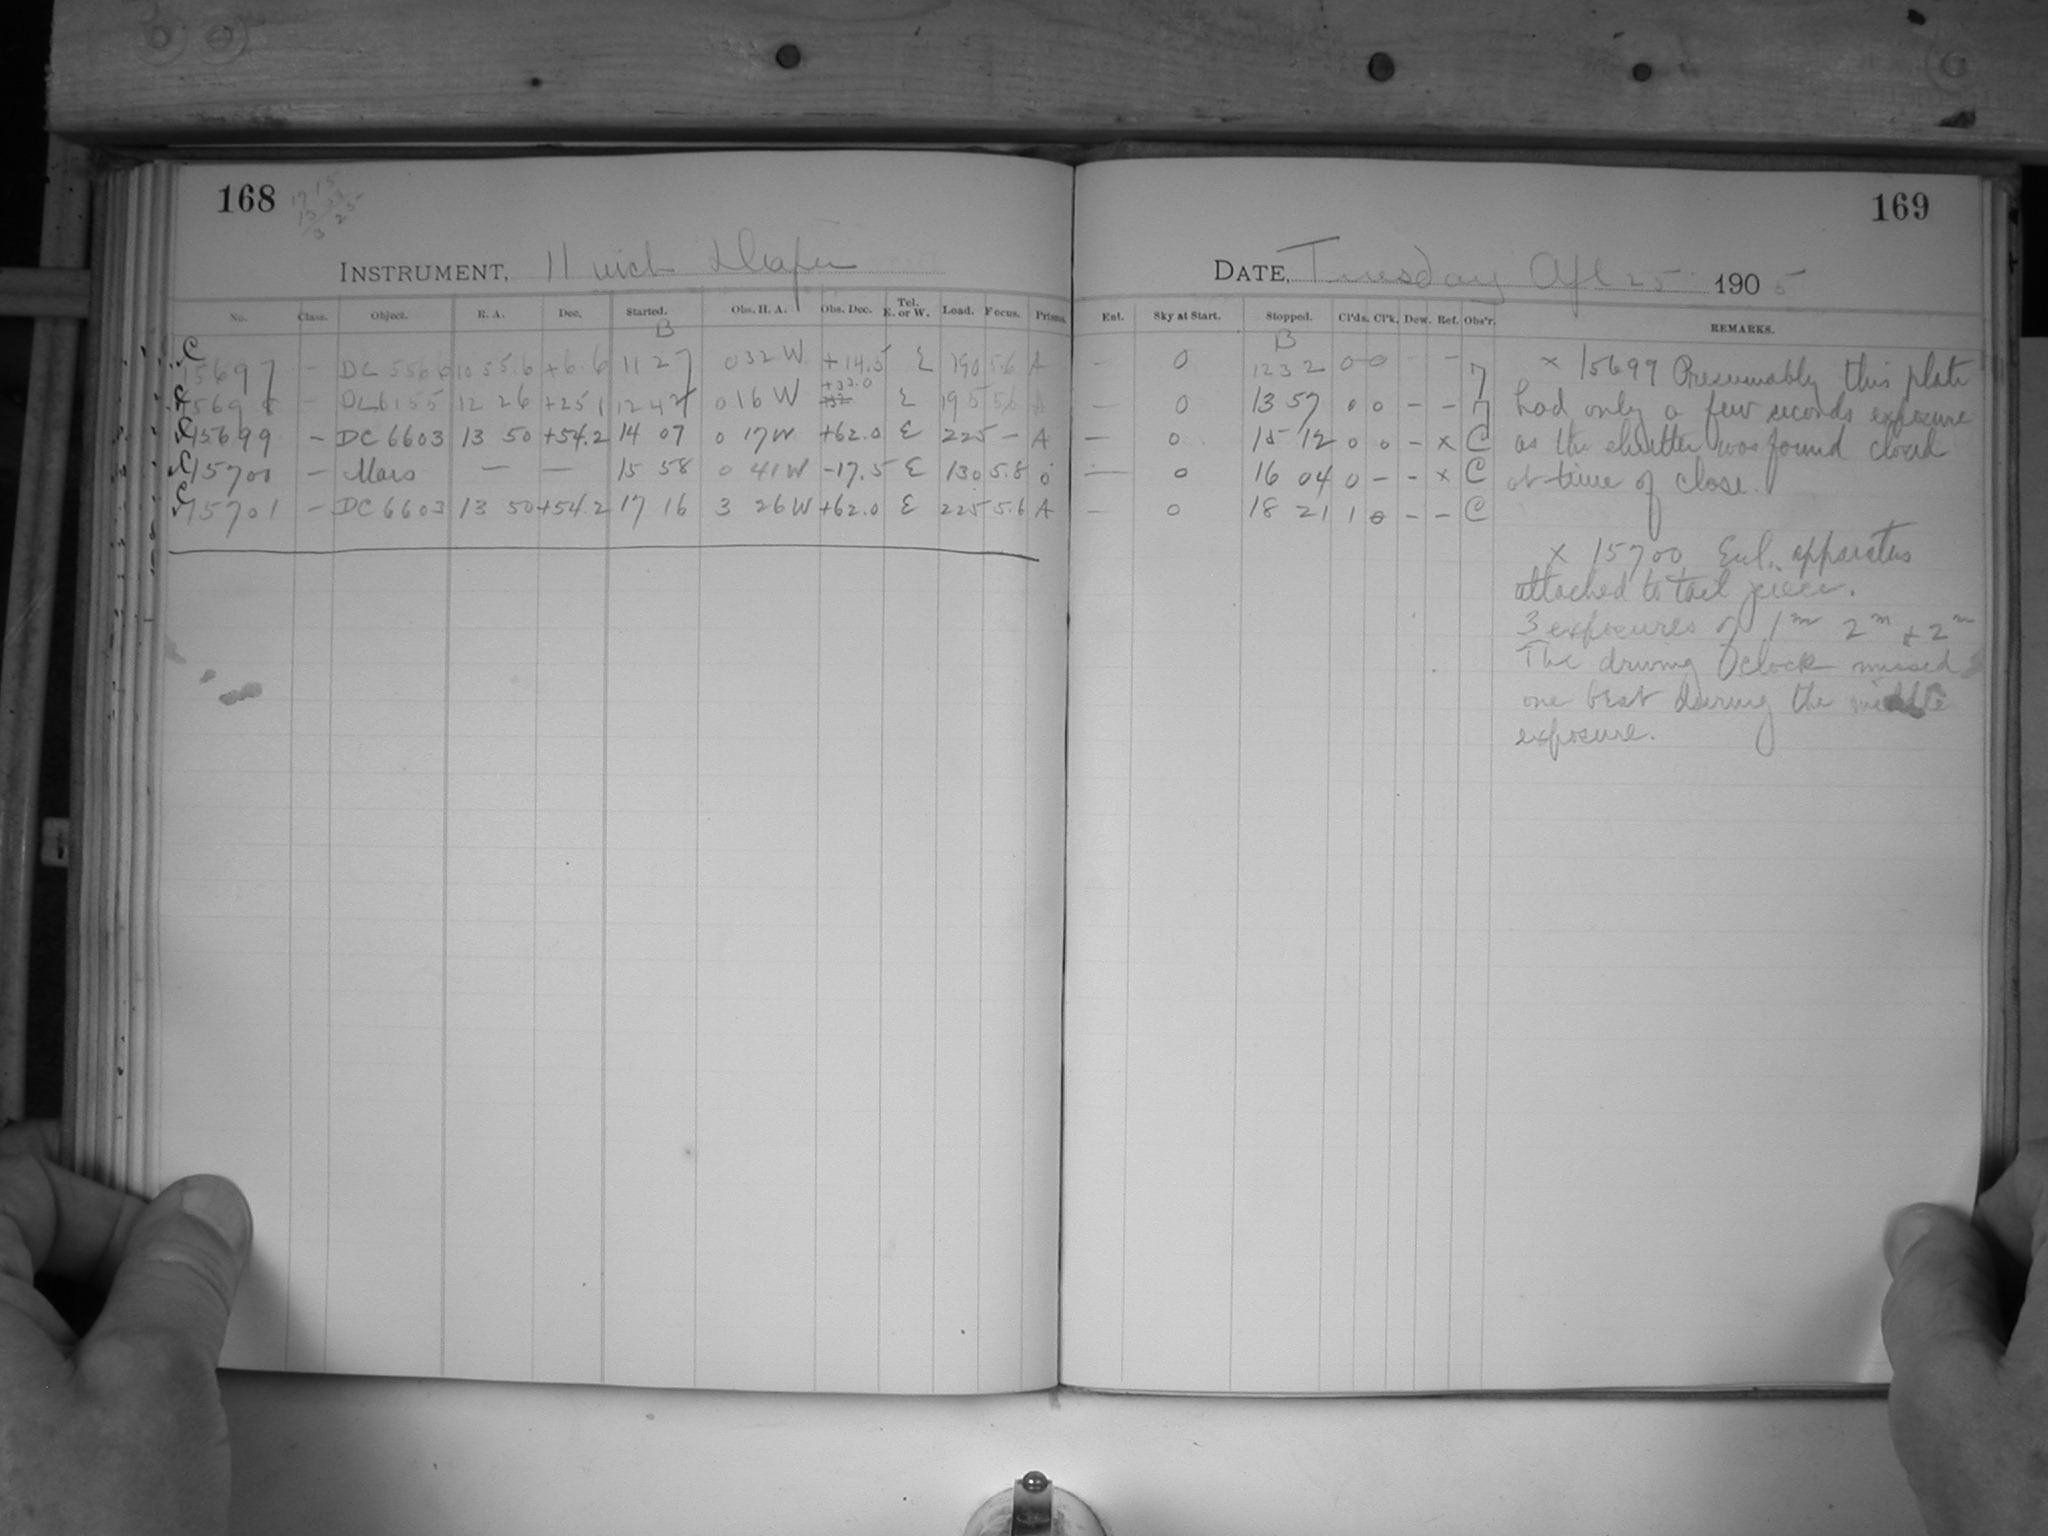 168
17 15
INSTRUMENT, 11 inch Draper
No. Class. Object. R. A. Dec. Started. Obs. H. A. Obs. Dec. Tel. E. or W. Load. Focus. Prisms.
B
C 15697 - DC 5566 10 55.6 +6.6 11 27 0 32 W +14.5 E 190 5.6 A
C 15698 - DC 6155 12 26 +25 1 12 42 0 16 W +33.0 E 195 5.6 A
C 15699 - DC 6603 13 50 +54.2 14 07 0 17 W +62.0 E 225 - A
C 15700 - Mars — — 15 58 0 41 W -17.5 E 130 5.8 0
C 15701 - DC 6603 13 50 +54.2 17 16 3 26 W +62.0 E 225 5.6 A
169
DATE, Tuesday Apl 25 1905
Ent. Sky at Start. Stopped. Cl'ds. Cl'k. Dew. Ref. Obs'r. REMARKS.
B
- 0 12 32 0 0 - -
- 0 13 57 0 0 - -
- 0 15 12 0 0 - x C
- 0 16 04 0 - - x C
- 0 18 21 1 0 - - C
x 15699 Presumably this plate
had only a few seconds exposure
as the shutter was found closed
at time of close.
x 15700 Enl. apparatus
attached to tail piece.
3 exposures of 1m 2m & 2m
The driving clock missed
one beat during the middle
exposure.